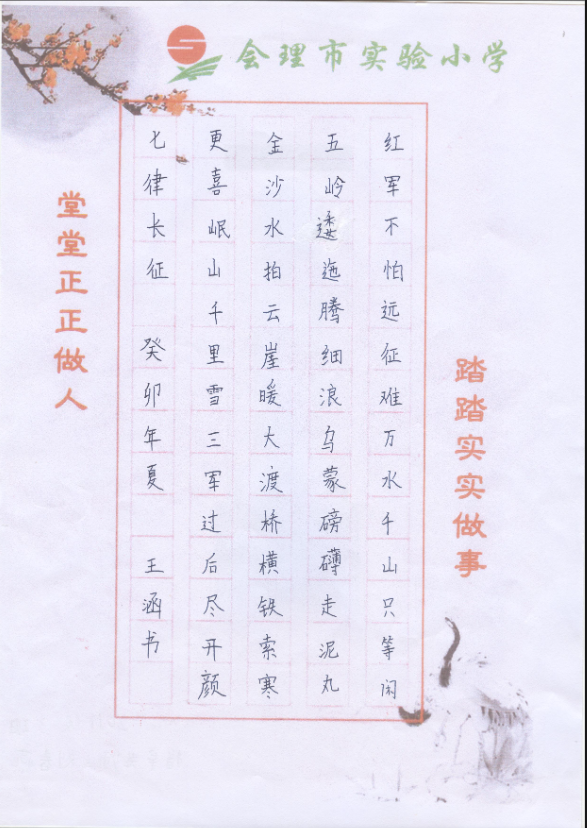 会理市实验小学
堂堂正正做人
踏踏实实做事
红军不怕远征难万水千山只等闲
五岭逶迤腾细浪乌蒙磅礴走泥丸
金沙水拍云崖暖大渡桥横铁索寒
更喜岷山千里雪三军过后尽开颜
七律长征 癸卯年夏 王涵书